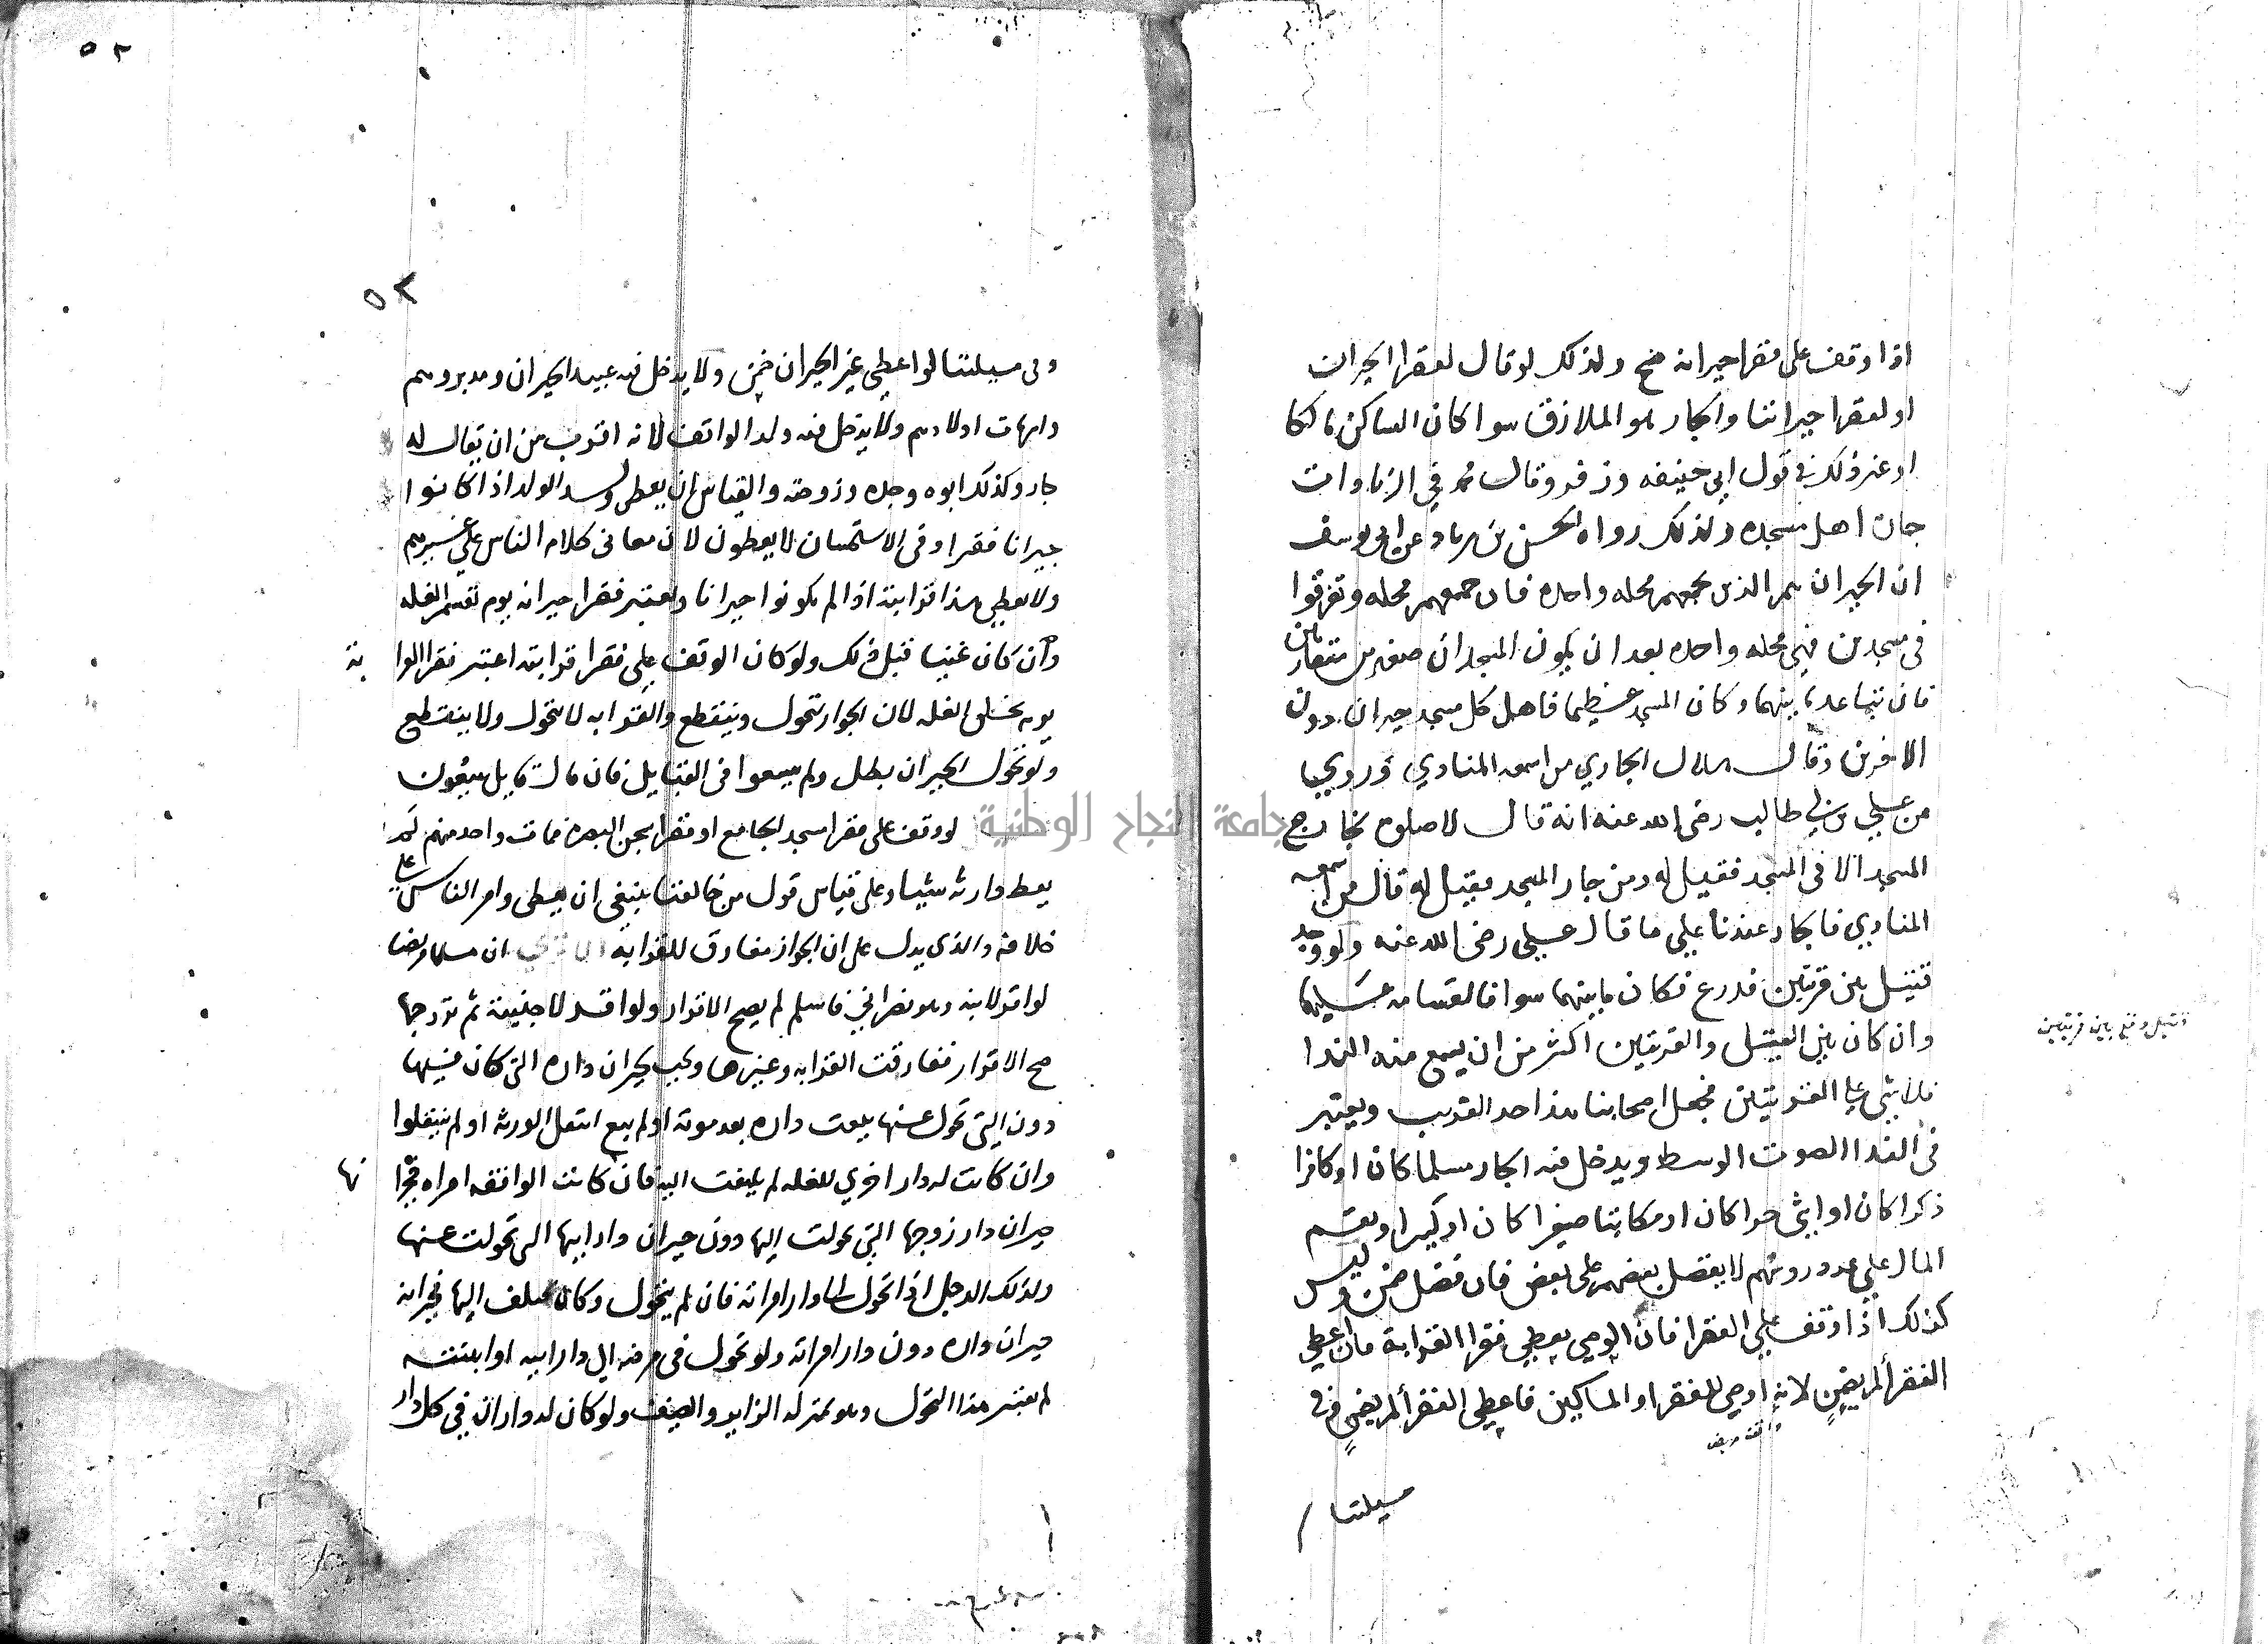 اذا وقف على فقرا جيرانه صح ولذلك لو قال لفقرا الجيران
او لفقرا جيراننا والجار هو الملازق سوا كان الساكن مالكا
او غير ذلك في قول ابي حنيفه وزفر وقال محمد في الزيادات
جاره اهل مسجده ولذلك رواه الحسن بن زياد عن ابي يوسف
ان الجيران هم الذين يجمعهم محله واحده فان جمعهم محله وتفرقوا
في مسجدين فهي محله واحده بعد ان يكون المسجدان صغيرين متقاربين
فان تباعد ما بينهما وكان المسجد عظيما فاهل كل مسجد جيران دون
الاخرين وقال هلال الجاري من اسمعه المنادي وروي
عن علي بن ابي طالب رضي الله عنه انه قال لا صلوه لجار
المسجد الا في المسجد فقيل له ومن جار المسجد فقيل له قال من اسمعه
المنادي فالجار عندنا علي ما قال علي رضي الله عنه ولو وجد
قتيل بين قريتين فذرع فكان ما بينهما سوا فالقسامه عليهما
وان كان بين القتيل والقريتين اكثر من ان يسمع منه الندا
فلا شي علي القريتين فجعل اصحابنا هذا حد القريب ويعتبر
في الندا الصوت الوسط ويدخل فيه الجار مسلما كان او كافرا
ذكرا كان او انثي حرا كان او مكاتبا صغيرا كان او كبيرا ويقسم
المال علي عدد روسهم لا يفضل بعضهم على بعض فان فضل ضمن وليس
كذلك اذا وقف علي الفقرا فان الوصي يعطي فقرا القرابة فان اعطي
الفقرا لم يضمن لانه اوصي للفقرا والمساكين فاعطي الفقرا لم يضمن وفي
مسيلتنا
قتيل وقع بين قريتين
٥٢
٥٢
وفي مسيلتنا لو اعطي غير الجيران ضمن ولا يدخل فيه عبيد الجيران ومدبروهم
وامهات اولادهم ولا يدخل فيه ولد الواقف لانه اقرب من ان يقال له
جار وكذلك ابوه وجده وزوجته والقياس ان يعطي ولد الولد اذا كانوا
جيرانا فقرا وفي الاستحسان لا يعطون لان معاني كلام الناس علي غيرهم
ولا يعطي هذا قرابته اذا لم يكونوا جيرانا ويعتبر فقرا جيرانه يوم تقسم الغله
وان كان غنيا قبل ذلك ولو كان الوقف علي فقرا قرابته اعتبر فقرا القرابة
يوم تخلق الغله لان الجوار يتحول وينقطع والقرابه لا تتحول ولا ينقطع
ولو تحول الجيران بطل ولم يسعوا في القبايل فان قال قايل يبقون
لو وقف على فقرا مسجد الجامع او فقرا سجن البصره فمات واحد منهم لم
يعط وارثه شيا وعلى قياس قول من خالفنا ينبغي ان يعطي وامر الناس علي
خلافه والذي يدل على ان الجوار مفارق للقرابه ان مسلما مريضا
لو اقر لابنه وهو نصراني فاسلم لم يصح الاقرار ولو اقر لاجنبية ثم تزوجها
صح الاقرار ففارقت القرابه وغيرها ويجب لجيران داره التي كان فيها
دون التي تحول عنها بيعت داره بعد موته او لم تبع انتقل الورثه او لم ينتقلوا
وان كانت له دار اخري للغله لم يلتفت اليه فان كانت الواقفه امراه فجيرانها
جيران دار زوجها التي تحولت اليها دون جيران دار ابيها التي تحولت عنها
ولذلك الرجل اذا تحول الي دار امراته فان لم يتحول وكان يختلف اليها فجيرانه
جيران داره دون دار امراته ولو تحول في مرضه الي دار ابيه او ابنته
لم يعتبر هذا التحول وهو بمنزله الزاير والضيف ولو كان له داران في كل دار
جامعة النجاح الوطنية